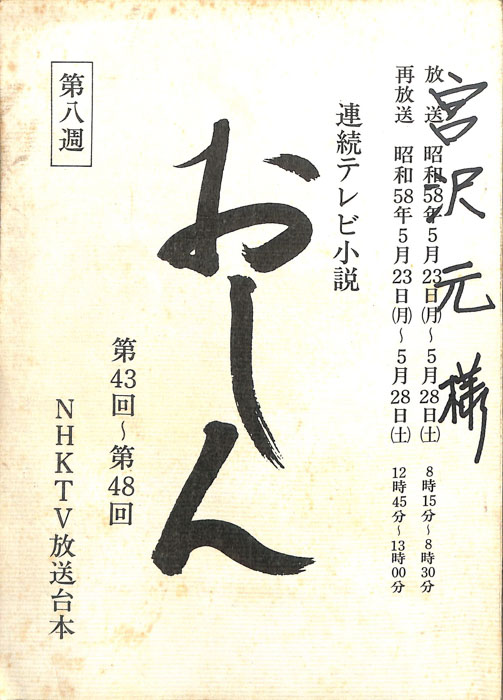 宮沢元様
放送 昭和58年5月23日(月)~5月28日(土) 8時15分~8時30分
再放送 昭和58年5月23日(月)~5月28日(土) 12時45分~13時00分
連続テレビ小説
おしん
第43回~第48回
NHKTV放送台本
第八週